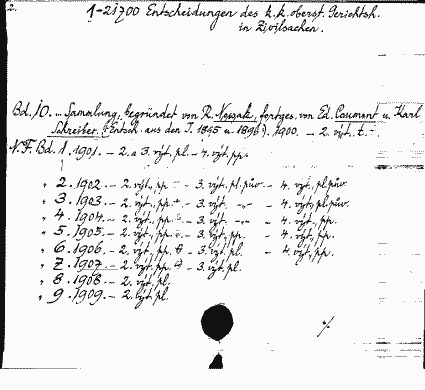 2.
1-21700 Entscheidungen des k.k. oberst. Gerichtsh.
in Zivilsachen.
Bd. 10. - Sammlung, begründet von R. Nowak, fortges. von Ed. Coumont u. Karl
Schreiber. (Entsch. aus den J. 1895 u 1896). 1900. - 2. výt. t. -
N.F. Bd. 1. 1901. - 2. a 3. výt. pl. - 4. výt. pp.
" 2. 1902. - 2. výt. pp - 3. výt. pl. pův. - 4. výt. pl. pův.
" 3. 1903. - 2. výt. pp. - 3. výt. -"- - 4. výt. pl. pův.
" 4. 1904. - 2. výt. pp. - 3. výt. -"- - 4. výt. pp.
" 5. 1905. - 2. výt. pp. - 3. výt. pp. - 4. výt. pp.
" 6. 1906. - 2. výt. pp. - 3. výt. pl. - 4. výt. pp.
" 7. 1907. - 2. výt. pp. - 3. výt. pl.
" 8. 1908. - 2. výt. pl.
" 9. 1909. - 2. výt. pl.